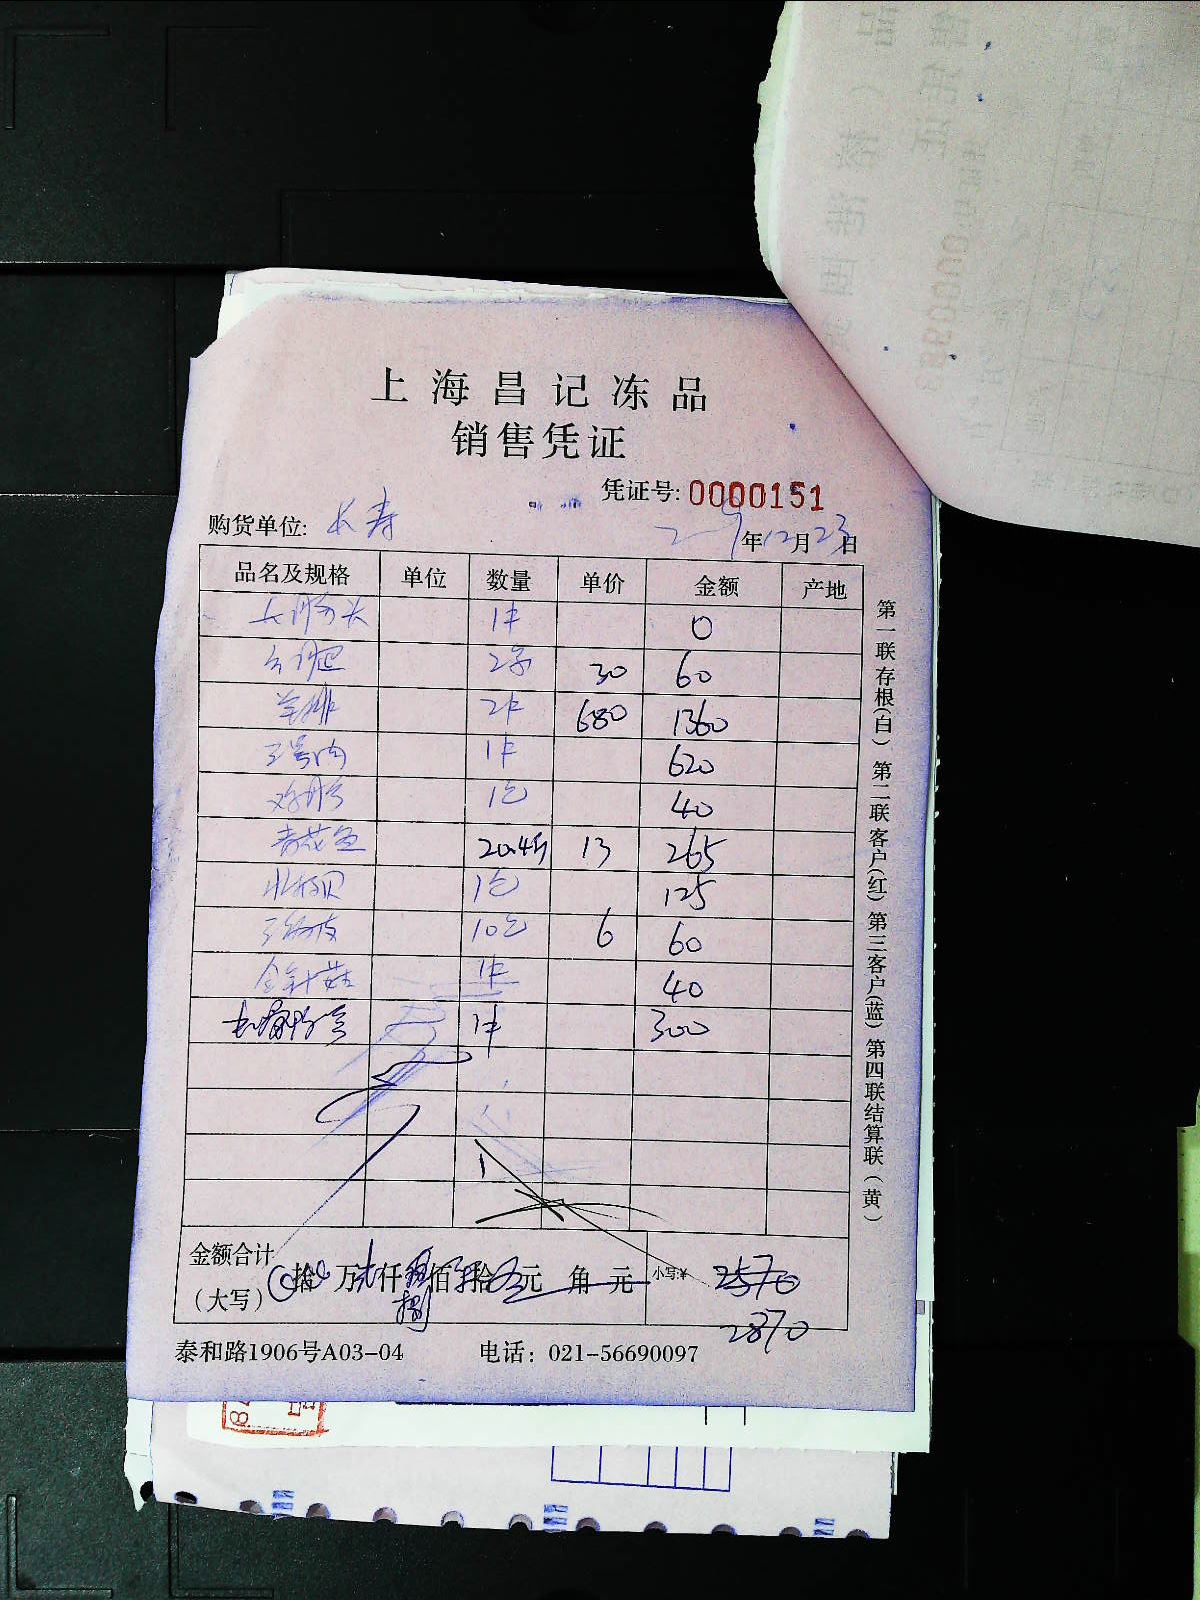 上海昌记冻品
销售凭证
凭证号: 0000151
购货单位: 长寿 年12月23日
品名及规格 单位 数量 单价 金额 产地
1件 0
30 60
羊排 2件 680 1360
1件 620
1包 40
青花鱼 20.4斤 13 265
北极贝 1包 125
10包 6 60
金针菇 1件 40
1件 300
金额合计
(大写) 拾 万 贰仟 捌佰 拾 元 角 元 小写:¥ 2570
2870
泰和路1906号A03-04 电话: 021-56690097
第一联存根(白) 第二联客户(红) 第三客户(蓝) 第四联结算联(黄)